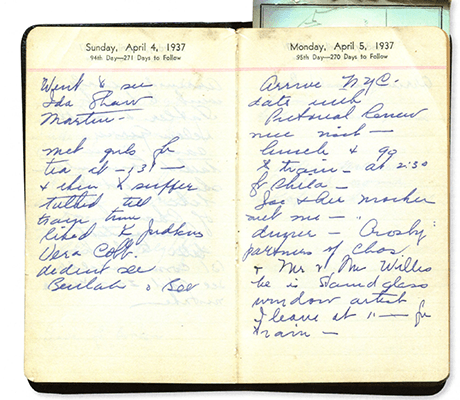 Sunday, April 4, 1937
94th Day—271 Days to Follow
Went to see
Ida Shaw
Martin—
met girls for
tea at
& then to supper
talked till
train time
liked K Judkins
Vera Cobb.
dident see
Beulah or Bee
Monday, April 5, 1937
95th Day—270 Days to Follow
Arrive NYC—
date with
Pictorial Review
nice visit—
lunch & go
to train— at 2:30
for Phila—
Joe & her mother
met me—
dinner— Crosby
partners of Chas.
& Mr & Mrs Willis
he is staind glass
window artist
I leave at 11— for
train—